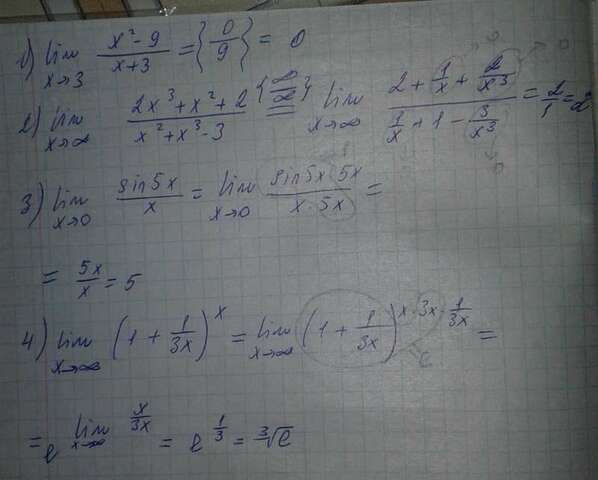 1) lim x→3 (x² - 9)/(x + 3) = {0/9} = 0
2) lim x→∞ (2x³ + x² + 2)/(x² + x³ - 3) {∞/∞} = lim x→∞ (2 + 1/x + 2/x³ →0)/(1/x + 1 - 3/x³ →0) = 2/1 = 2
3) lim x→0 sin5x/x = lim x→0 (sin5x · 5x)/(x · 5x) =
= 5x/x = 5
4) lim x→∞ (1 + 1/3x)^x = lim x→∞ (1 + 1/3x)^(x · 3x · 1/3x) = e
= e^(lim x→∞ x/3x) = e^(1/3) = ∛e